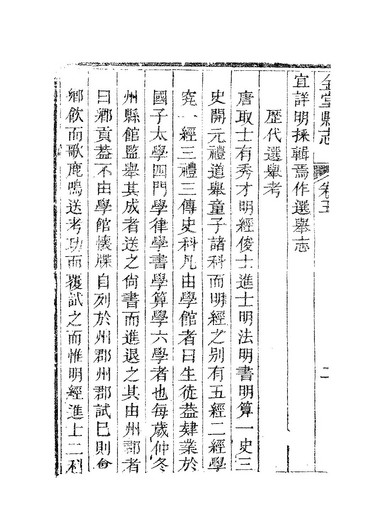 金堂縣志 卷五 二
宜詳明採輯焉作選舉志
歷代選舉考
唐取士有秀才明經俊士進士明法明書明算一史三
史開元禮道舉童子諸科而明經之别有五經二經學
究一經三禮三傳史科凡由學館者曰生徒蓋肄業於
國子太學四門學律學書學算學六學者也每歲仲冬
州縣館監舉其成者送之尙書而進退之其由州郡者
曰鄕貢蓋不由學館懷牒自列於州郡州郡試已則會
鄕飮而歌鹿鳴送考功而覆試之而惟明經進士二科